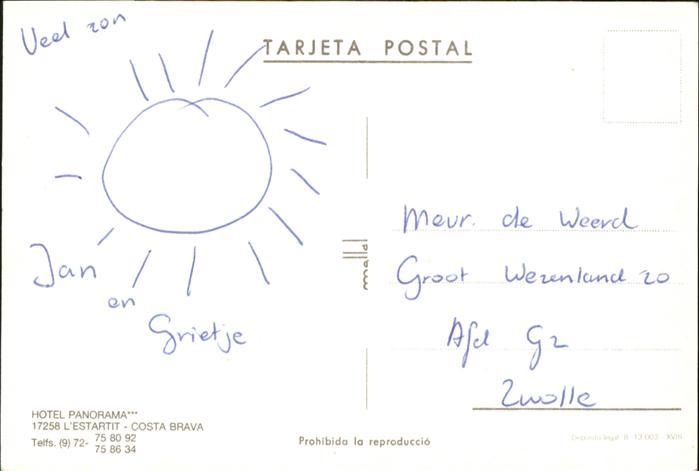 Veel zon
TARJETA POSTAL
Jan
en
Grietje
Mevr. de Weerd
Groot Wezenland 20
Afd G2
Zwolle
HOTEL PANORAMA***
17258 L'ESTARTIT - COSTA BRAVA
Telfs. (9) 72- 75 80 92
75 86 34
Prohibida la reproducció
Depósito legal B. 13.003 - XVIII